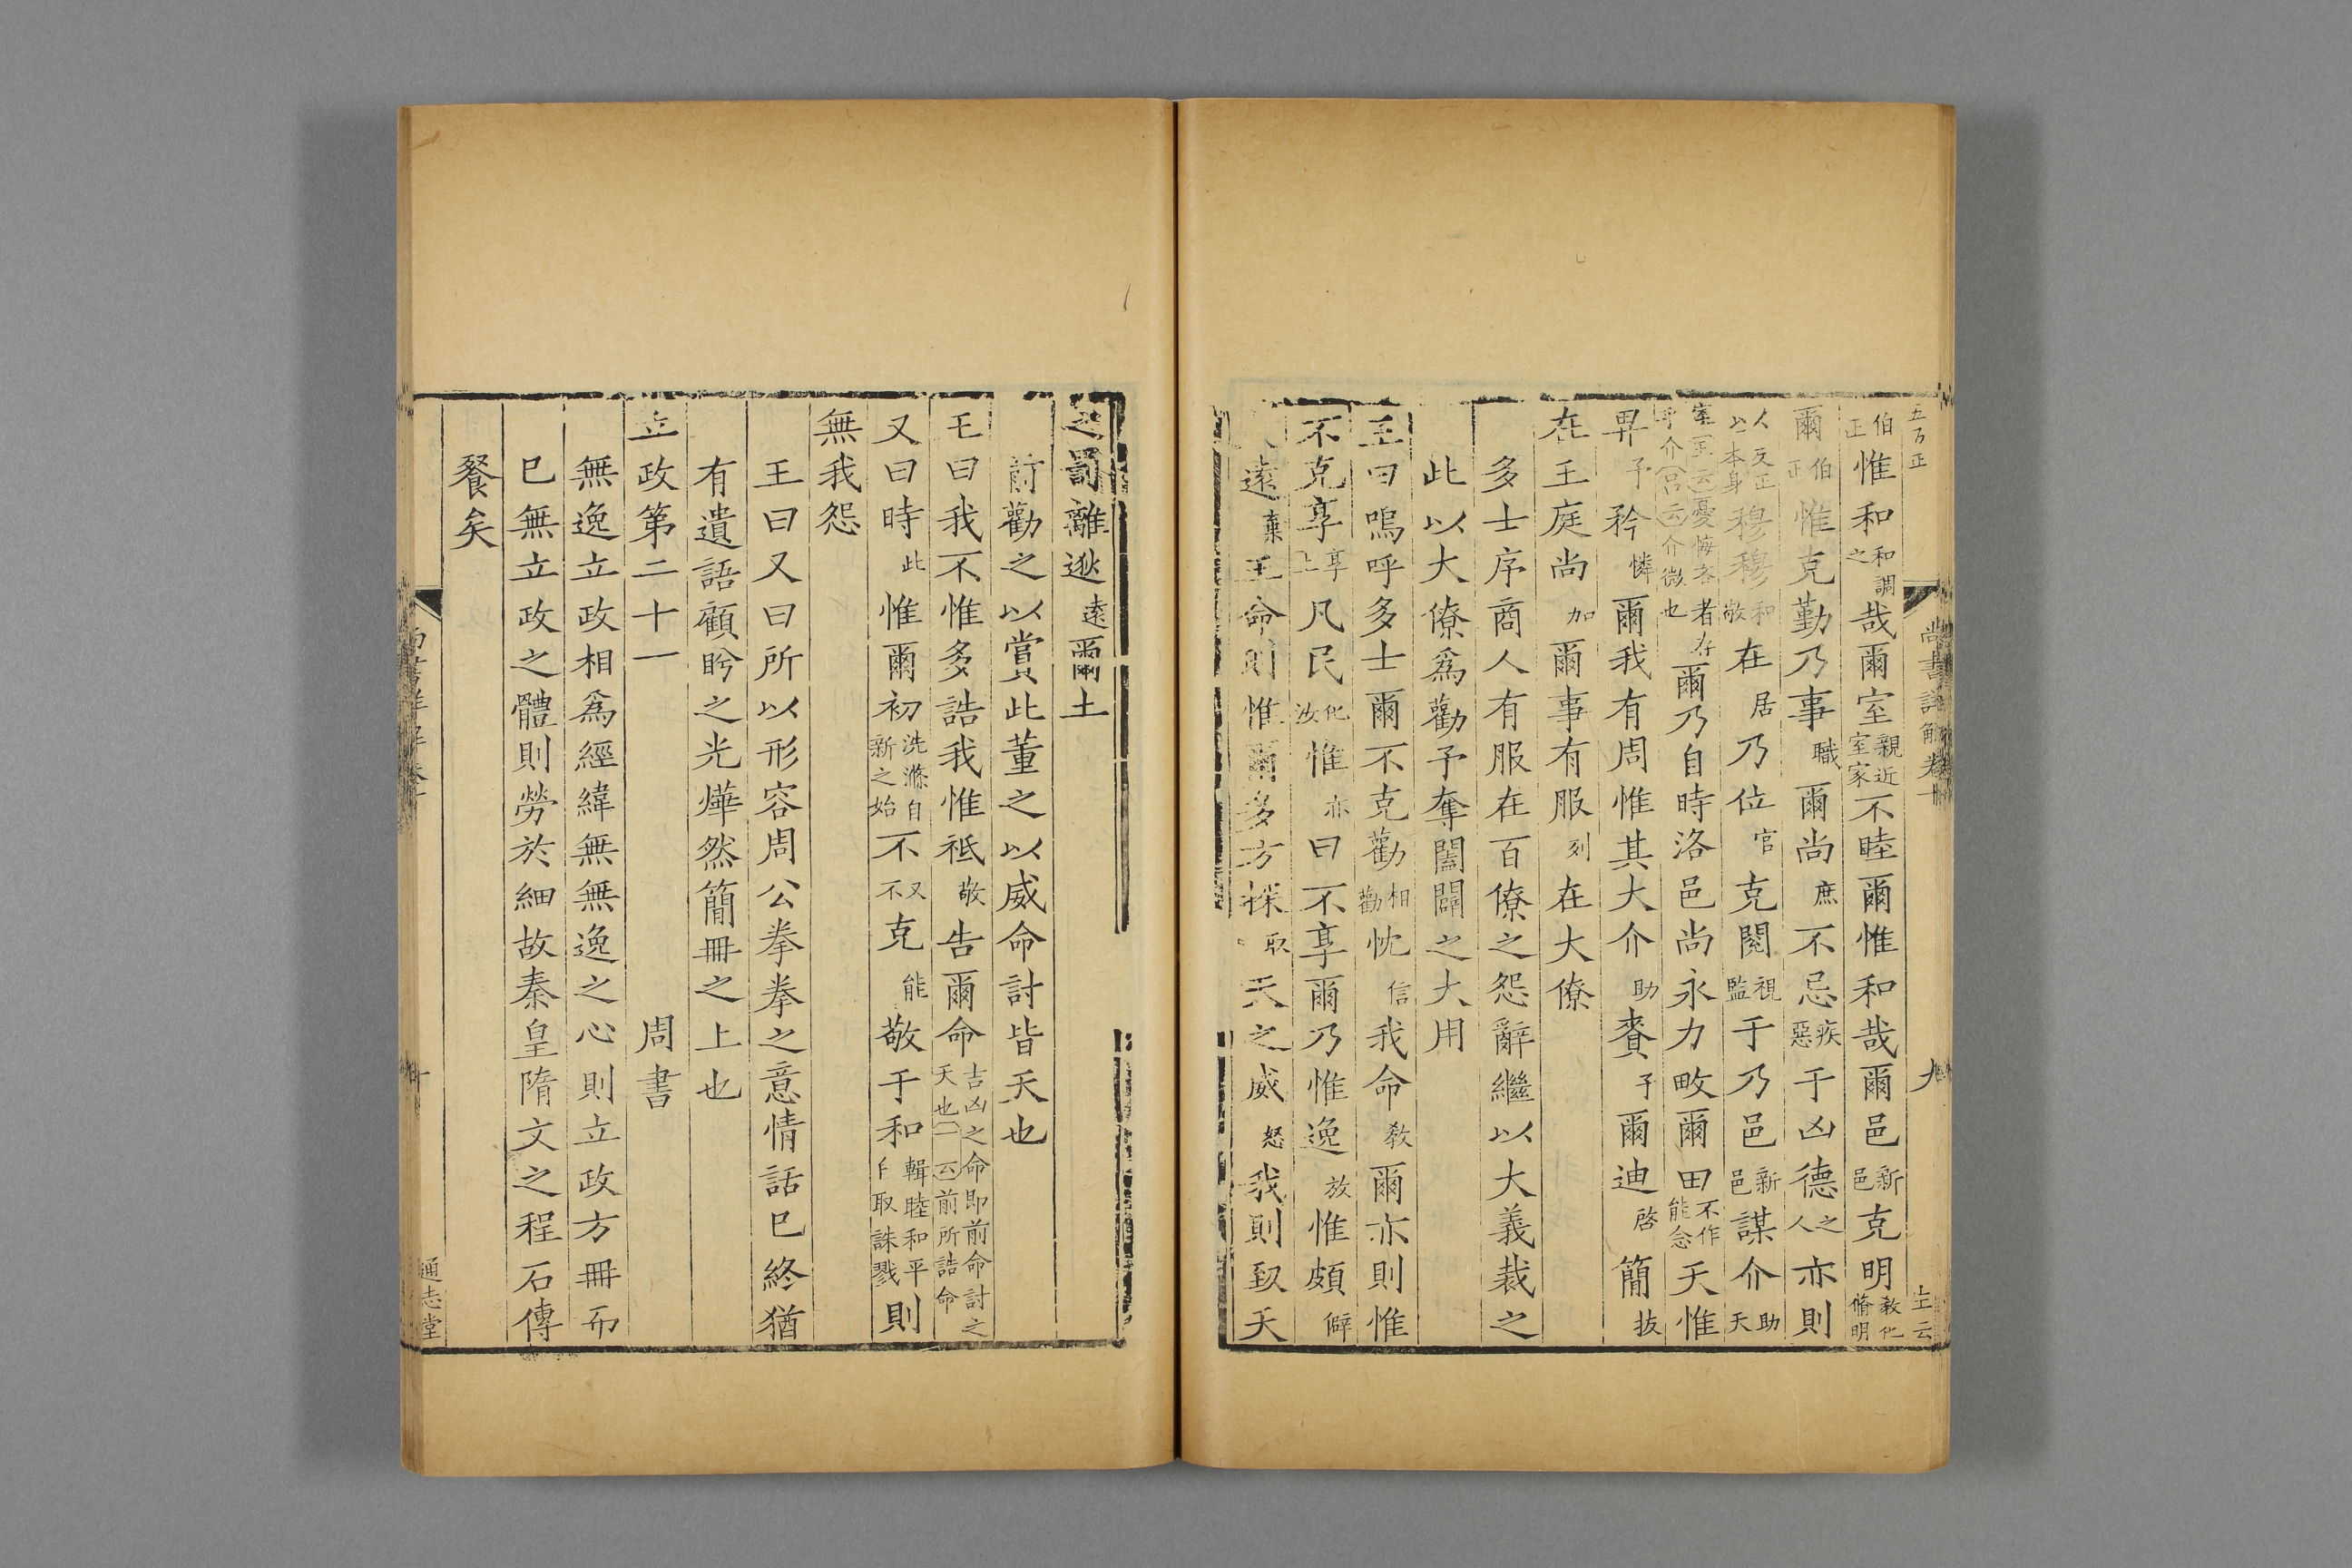 伯正惟和和調之哉爾室親近室家不睦爾惟和哉爾邑新邑克明教化脩明
爾伯正惟克勤乃事職爾尚庶不忌疾惡于凶德之人亦則
以穆穆和敬在居乃位官克閱視監于乃邑新邑謀介助天
爾乃自時洛邑尚永力畋爾田不作能念天惟
畀予矜憐爾我有周惟其大介助賚予爾迪啓簡拔
在王庭尚加爾事有服列在大僚
多士序商人有服在百僚之怨辭繼以大義裁之
此以大僚爲勸予奪闔闢之大用
王曰嗚呼多士爾不克勸相勸忱信我命教爾亦則惟
不克享享上凡民化汝惟亦曰不享爾乃惟逸放惟頗僻
遠棄王命則惟爾多方探取天之威怒我則致天
之罰離逖遠爾土
前勸之以賞此董之以威命討皆天也
王曰我不惟多誥我惟祗敬告爾命吉凶之命即前命討之天也一云前所誥命
又曰時此惟爾初洗滌自新之始不又不克能敬于和輯睦和平取誅戮則
無我怨
王曰又曰所以形容周公拳拳之意情話已終猶
有遺語顧眄之光燁然簡冊之上也
立政第二十一 周書
無逸立政相爲經緯無無逸之心則立政方冊而
已無立政之體則勞於細故秦皇隋文之程石傳
餐矣
通志堂